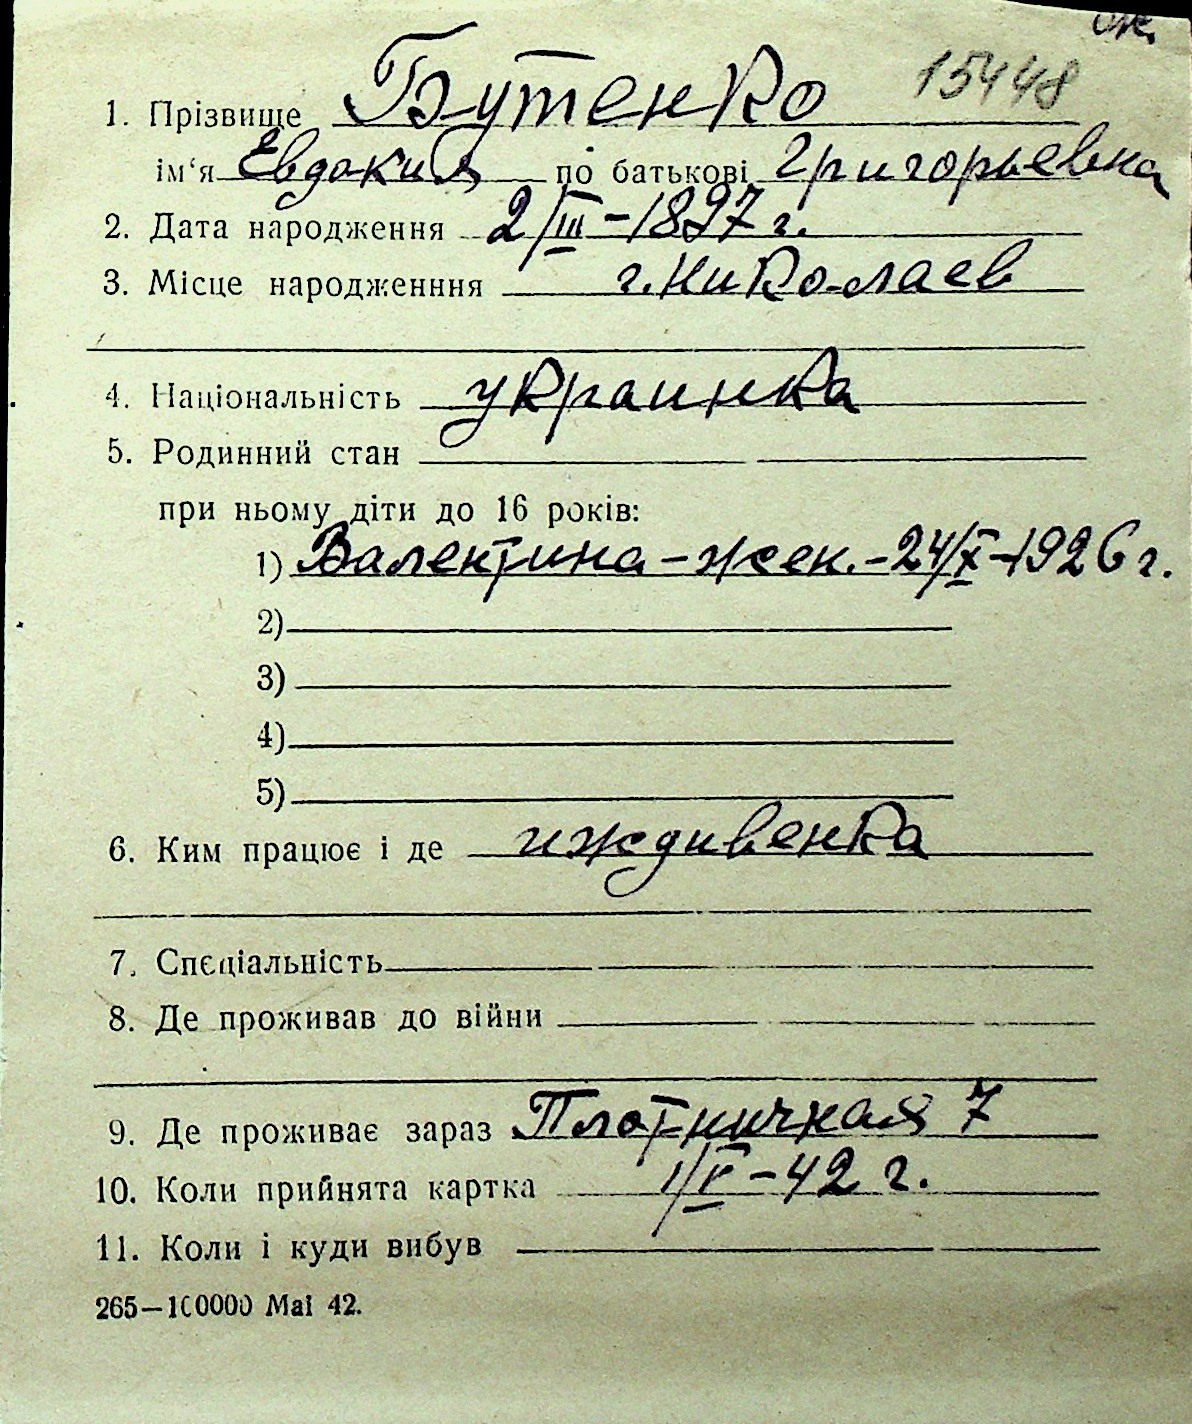 15448
1. Прізвище Бутенко
ім'я Евдокия по батькові Григорьевна
2. Дата народження 2/III - 1897 г.
3. Місце народженння г. Николаев
4. Національність украинка
5. Родинний стан
при ньому діти до 16 років:
1) Валентина - жен. - 24/X - 1926 г.
2)
3)
4)
5)
6. Ким працює і де иждивенка
7. Спєціальність
8. Де проживав до війни
9. Де проживає зараз Плотничная 7
10. Коли прийнята картка 1/V - 42 г.
11. Коли і куди вибув
265—100000 Mai 42.